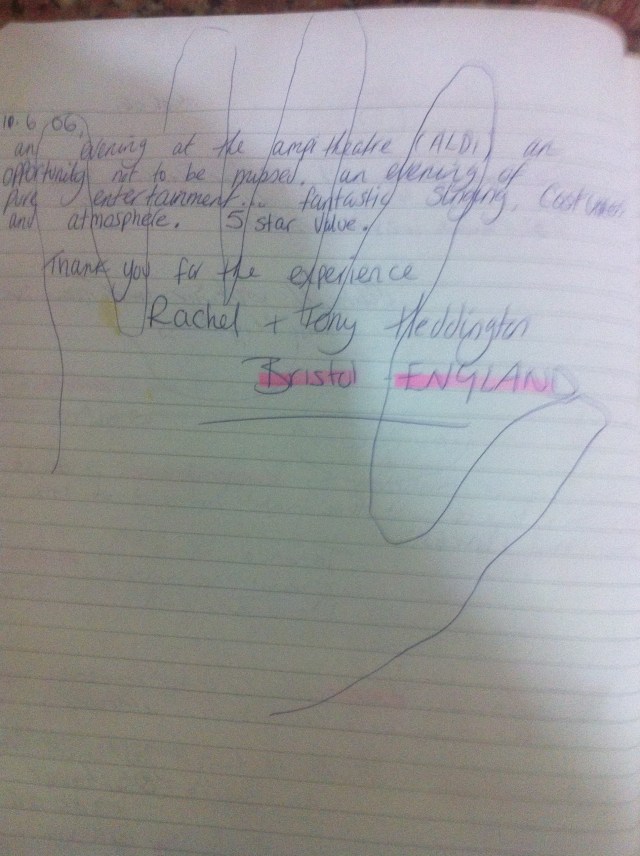 10.6.06.
an evening at the ampitheatre (ALDI) an
opportunity not to be missed. an evening of
pure entertainment... fantastic singing, Costumes
and atmosphere. 5 star value.
Thank you for the experience
Rachel + Terry Heddington
Bristol - ENGLAND